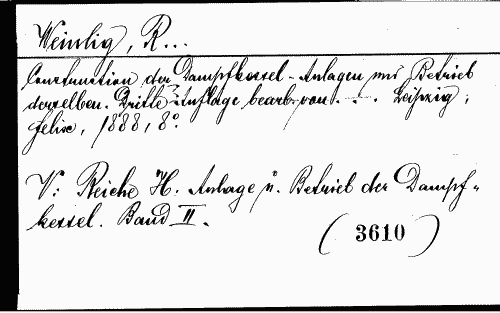 Weinlig, R...
Construction der Dampfkessel-Anlagen und Betrieb
derselben. Dritte Auflage bearb. von . . . Leipzig,
Felix, 1888, 8°.
V: Reiche H. Anlage u. Betrieb der Dampf-
kessel. Band II.
(3610)